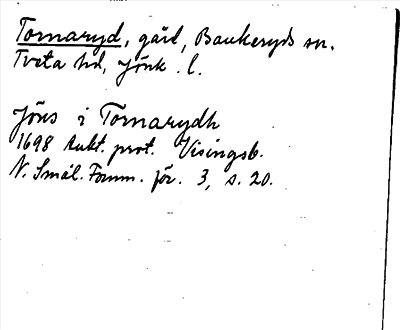 Tornaryd, gård, Bankeryds sn.
Tveta hd, Jönk. l.
Jöns i Tornarydh
1698 Aukt. prot. Visingsb.
N. Smål. Fornm. för. 3, s. 20.